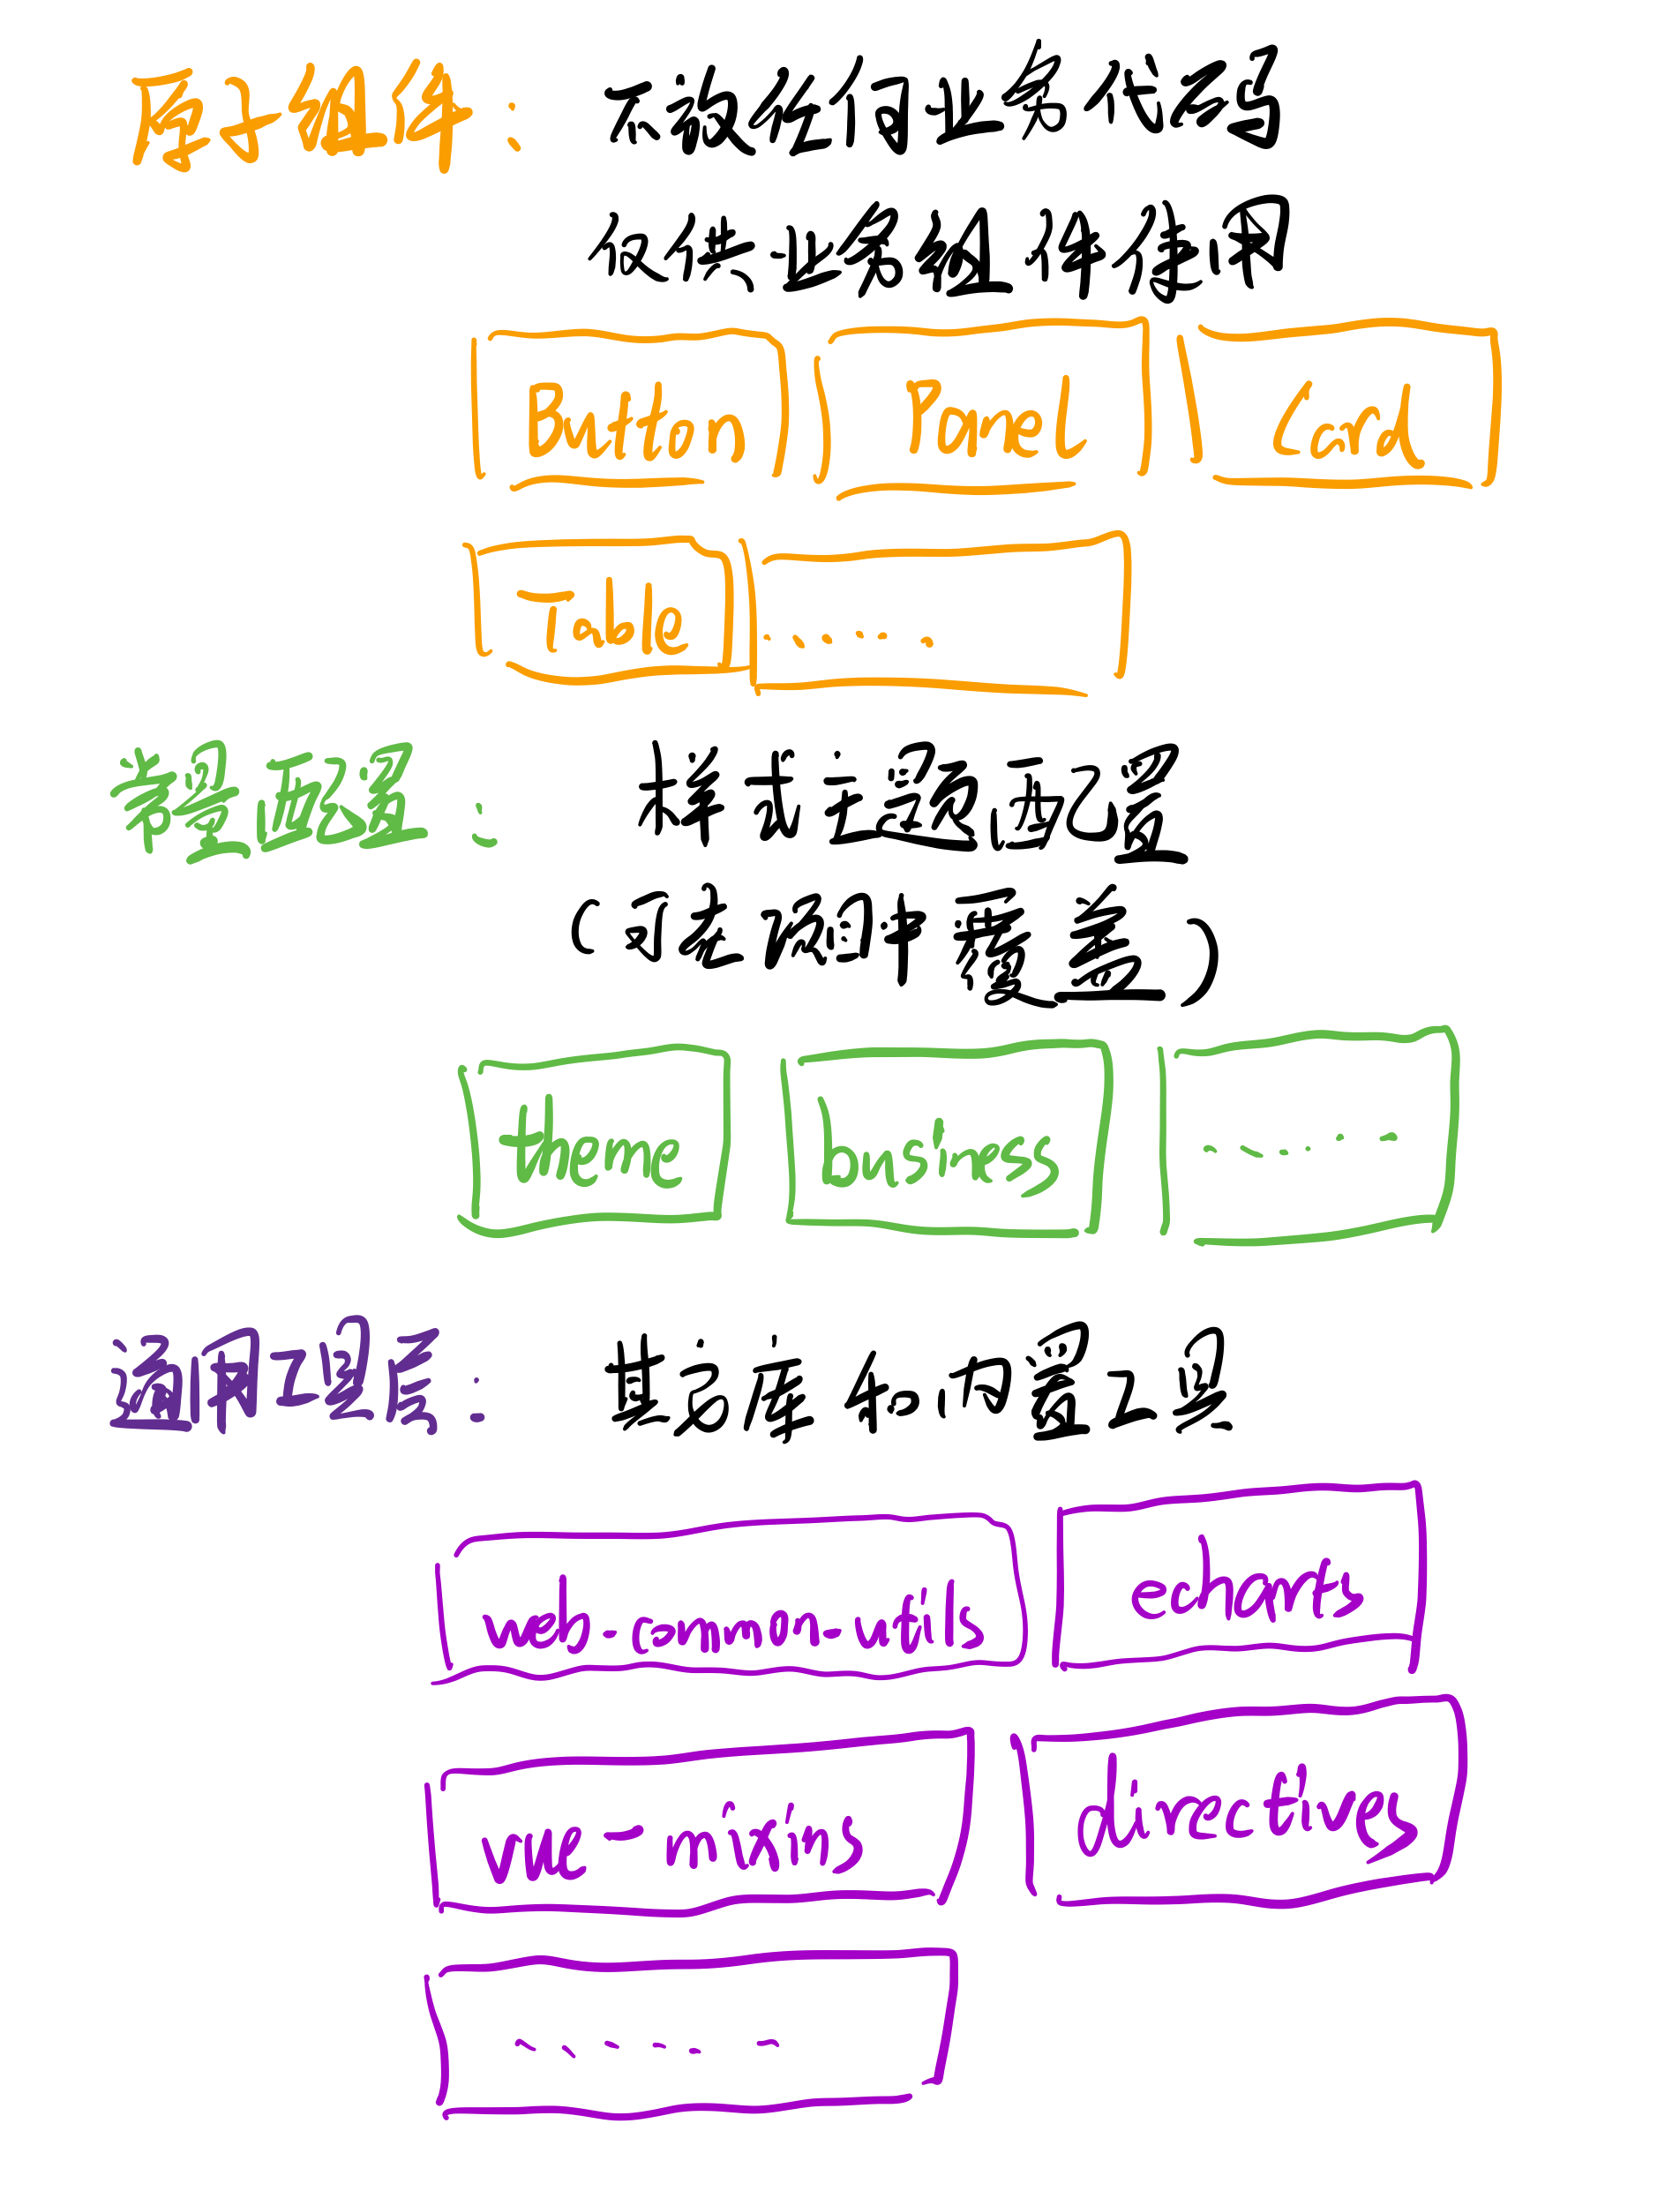 原子组件： 不放任何业务代码
仅供业务组件使用
Button Panel Card
Table ......
常量配置： 样式主题配置
（可在应用中覆盖）
theme business .....
通用工具： 其它库和内置工具
web-common-utils echarts
vue-mixins directives
......